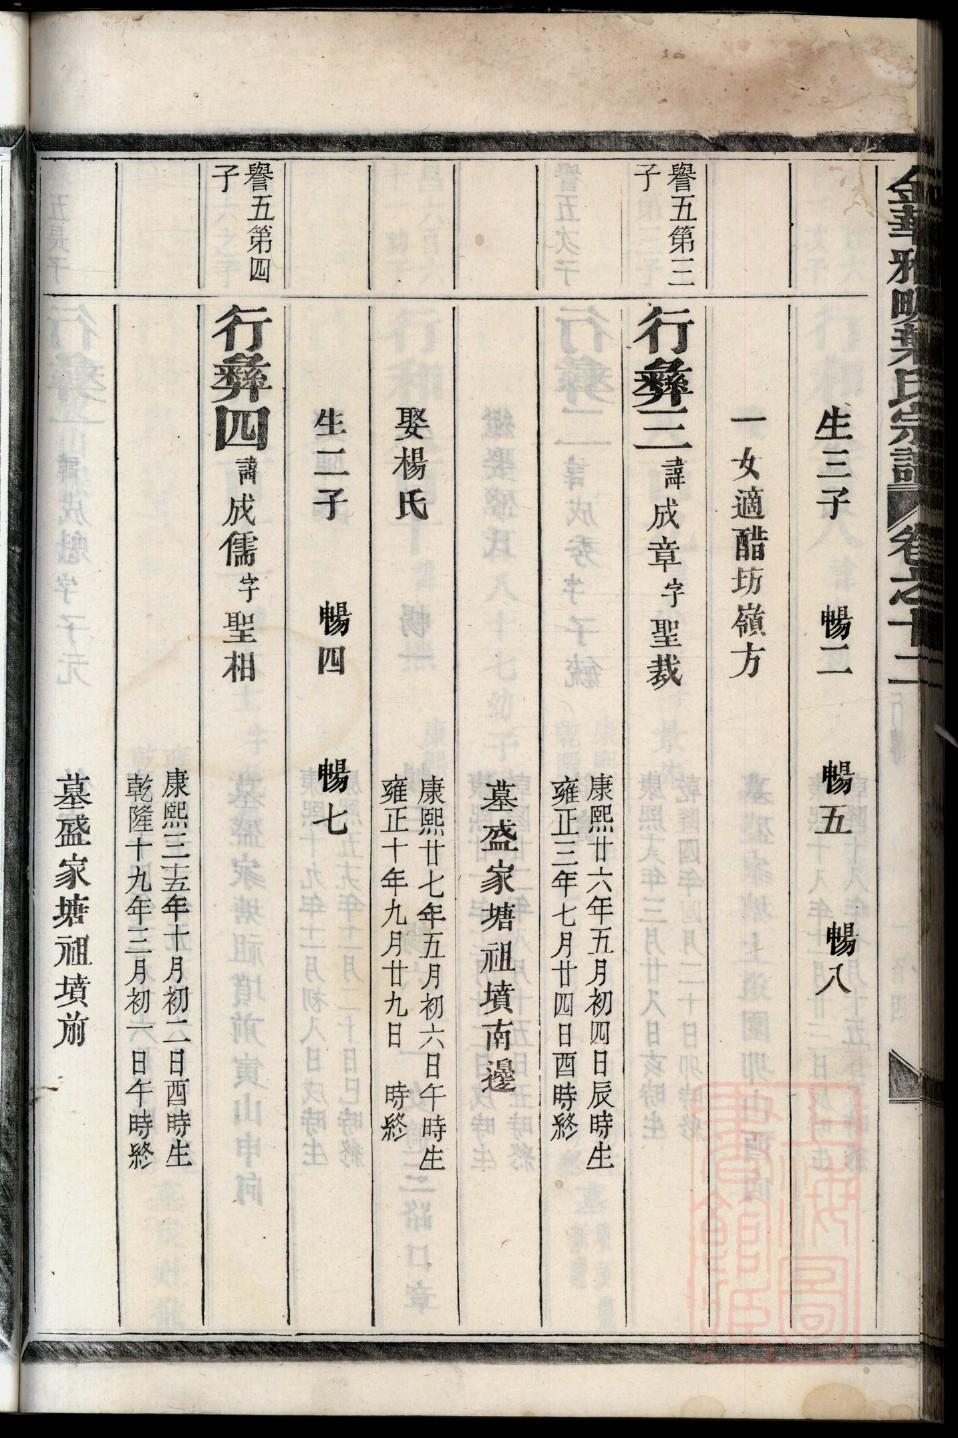 金華雅畈葉氏宗譜 卷之十二
生三子 暢二 暢五 暢八
一女適醋坊嶺方
譽五第三
子
行彝三 諱成章字聖裁
康熙廿六年五月初四日辰時生
雍正三年七月廿四日酉時終
墓盛家塘祖墳南邊
娶楊氏
康熙廿七年五月初六日午時生
雍正十年九月廿九日 時終
生二子 暢四 暢七
譽五第四
子
行彝四 諱成儒字聖相
康熙三十五年十月初二日酉時生
乾隆十九年三月初六日午時終
墓盛家塘祖墳前
上海圖書館藏